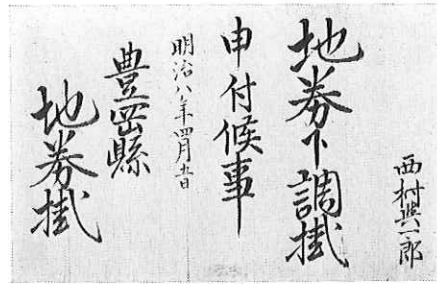 西村與一郎
地券下調掛
申付候事
明治八年四月五日
豊岡縣
地券掛